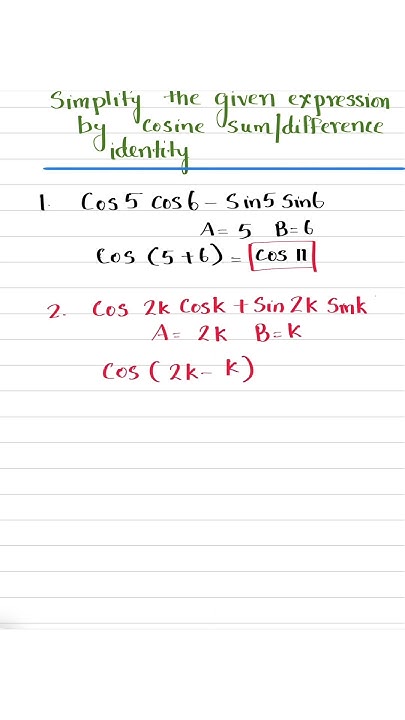 Simplify the given expression
by cosine sum/difference
identity
1. Cos 5 cos 6 - Sin5 Sin6
A = 5 B = 6
Cos (5+6) = cos 11
2. Cos 2k Cosk + Sin 2k Sink
A = 2k B = k
Cos (2k - k)